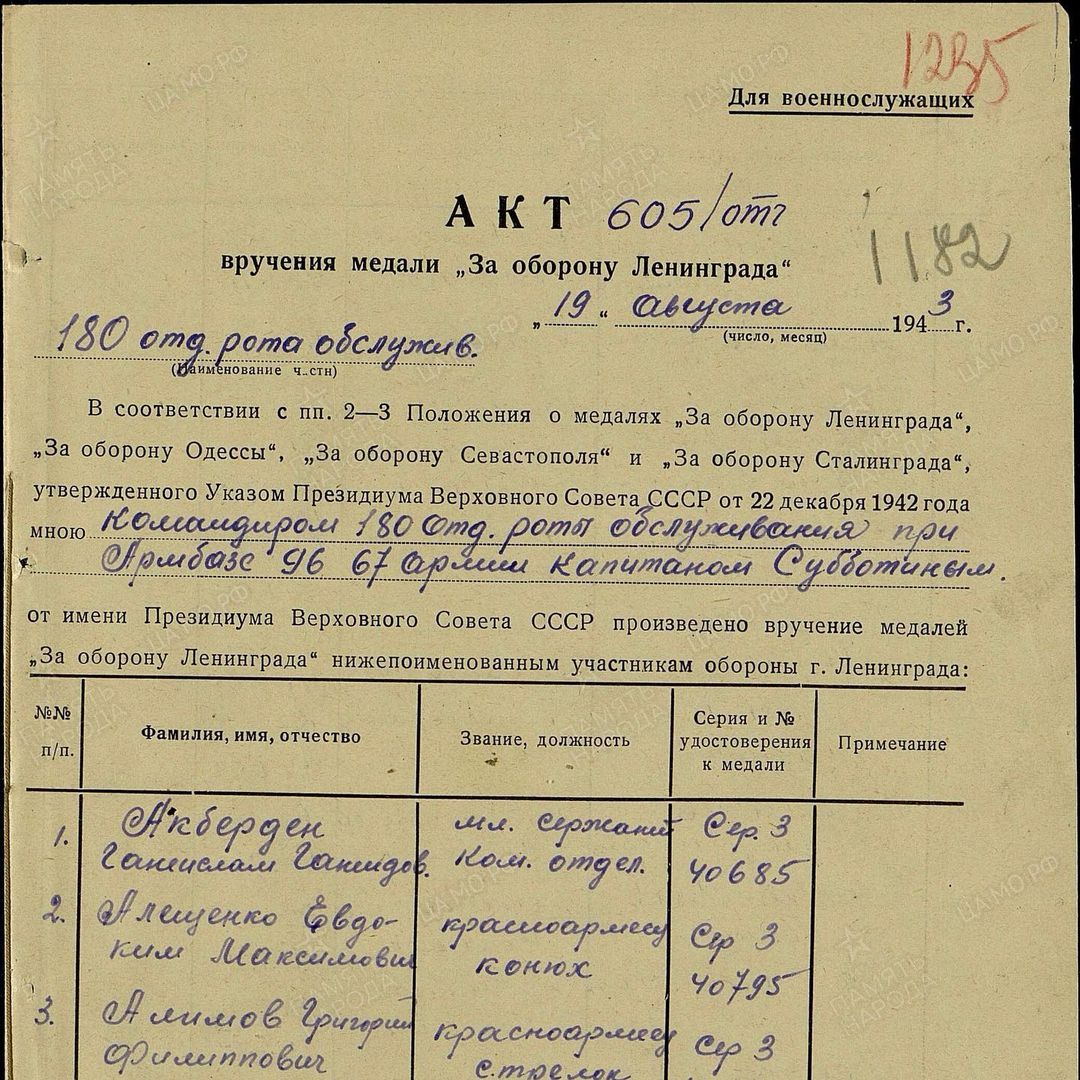 1235
Для военнослужащих
АКТ 605/отг
1182
вручения медали „За оборону Ленинграда“
„19“ августа 1943 г.
(число, месяц)
180 отд. рота обслужив.
(Наименование части)
В соответствии с пп. 2—3 Положения о медалях „За оборону Ленинграда“,
„За оборону Одессы“, „За оборону Севастополя“ и „За оборону Сталинграда“,
утвержденного Указом Президиума Верховного Совета СССР от 22 декабря 1942 года
мною Командиром 180 отд. роты обслуживания при
Армбазе 96 67 армии Капитаном Субботиным.
от имени Президиума Верховного Совета СССР произведено вручение медалей
„За оборону Ленинграда“ нижепоименованным участникам обороны г. Ленинграда:
№№ п/п. Фамилия, имя, отчество Звание, должность Серия и № удостоверения к медали Примечание
1. Акберден мл. сержант Сер. 3
Ком. отдел. 40685
2. Алещенко Евдо- красноармеец Сер 3
ким Максимович конюх 40795
3. Алимов Григорий красноармеец Сер 3
Филиппович стрелок
ПАМЯТЬ НАРОДА
ЦАМО.РФ